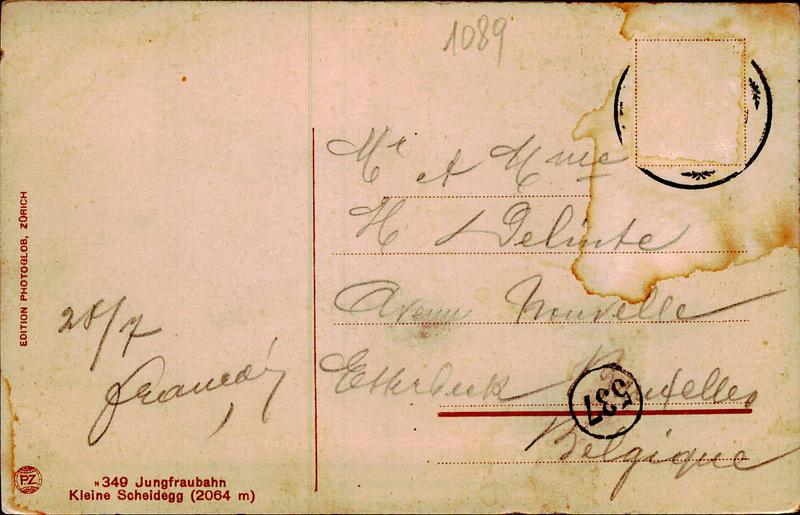 1089
Mr et Mme
H Delinte
Avenue Nouvelle
Etterbeek Bruxelles
Belgique
537
28/7
EDITION PHOTOGLOB, ZÜRICH
PZ
N 349 Jungfraubahn
Kleine Scheidegg (2064 m)